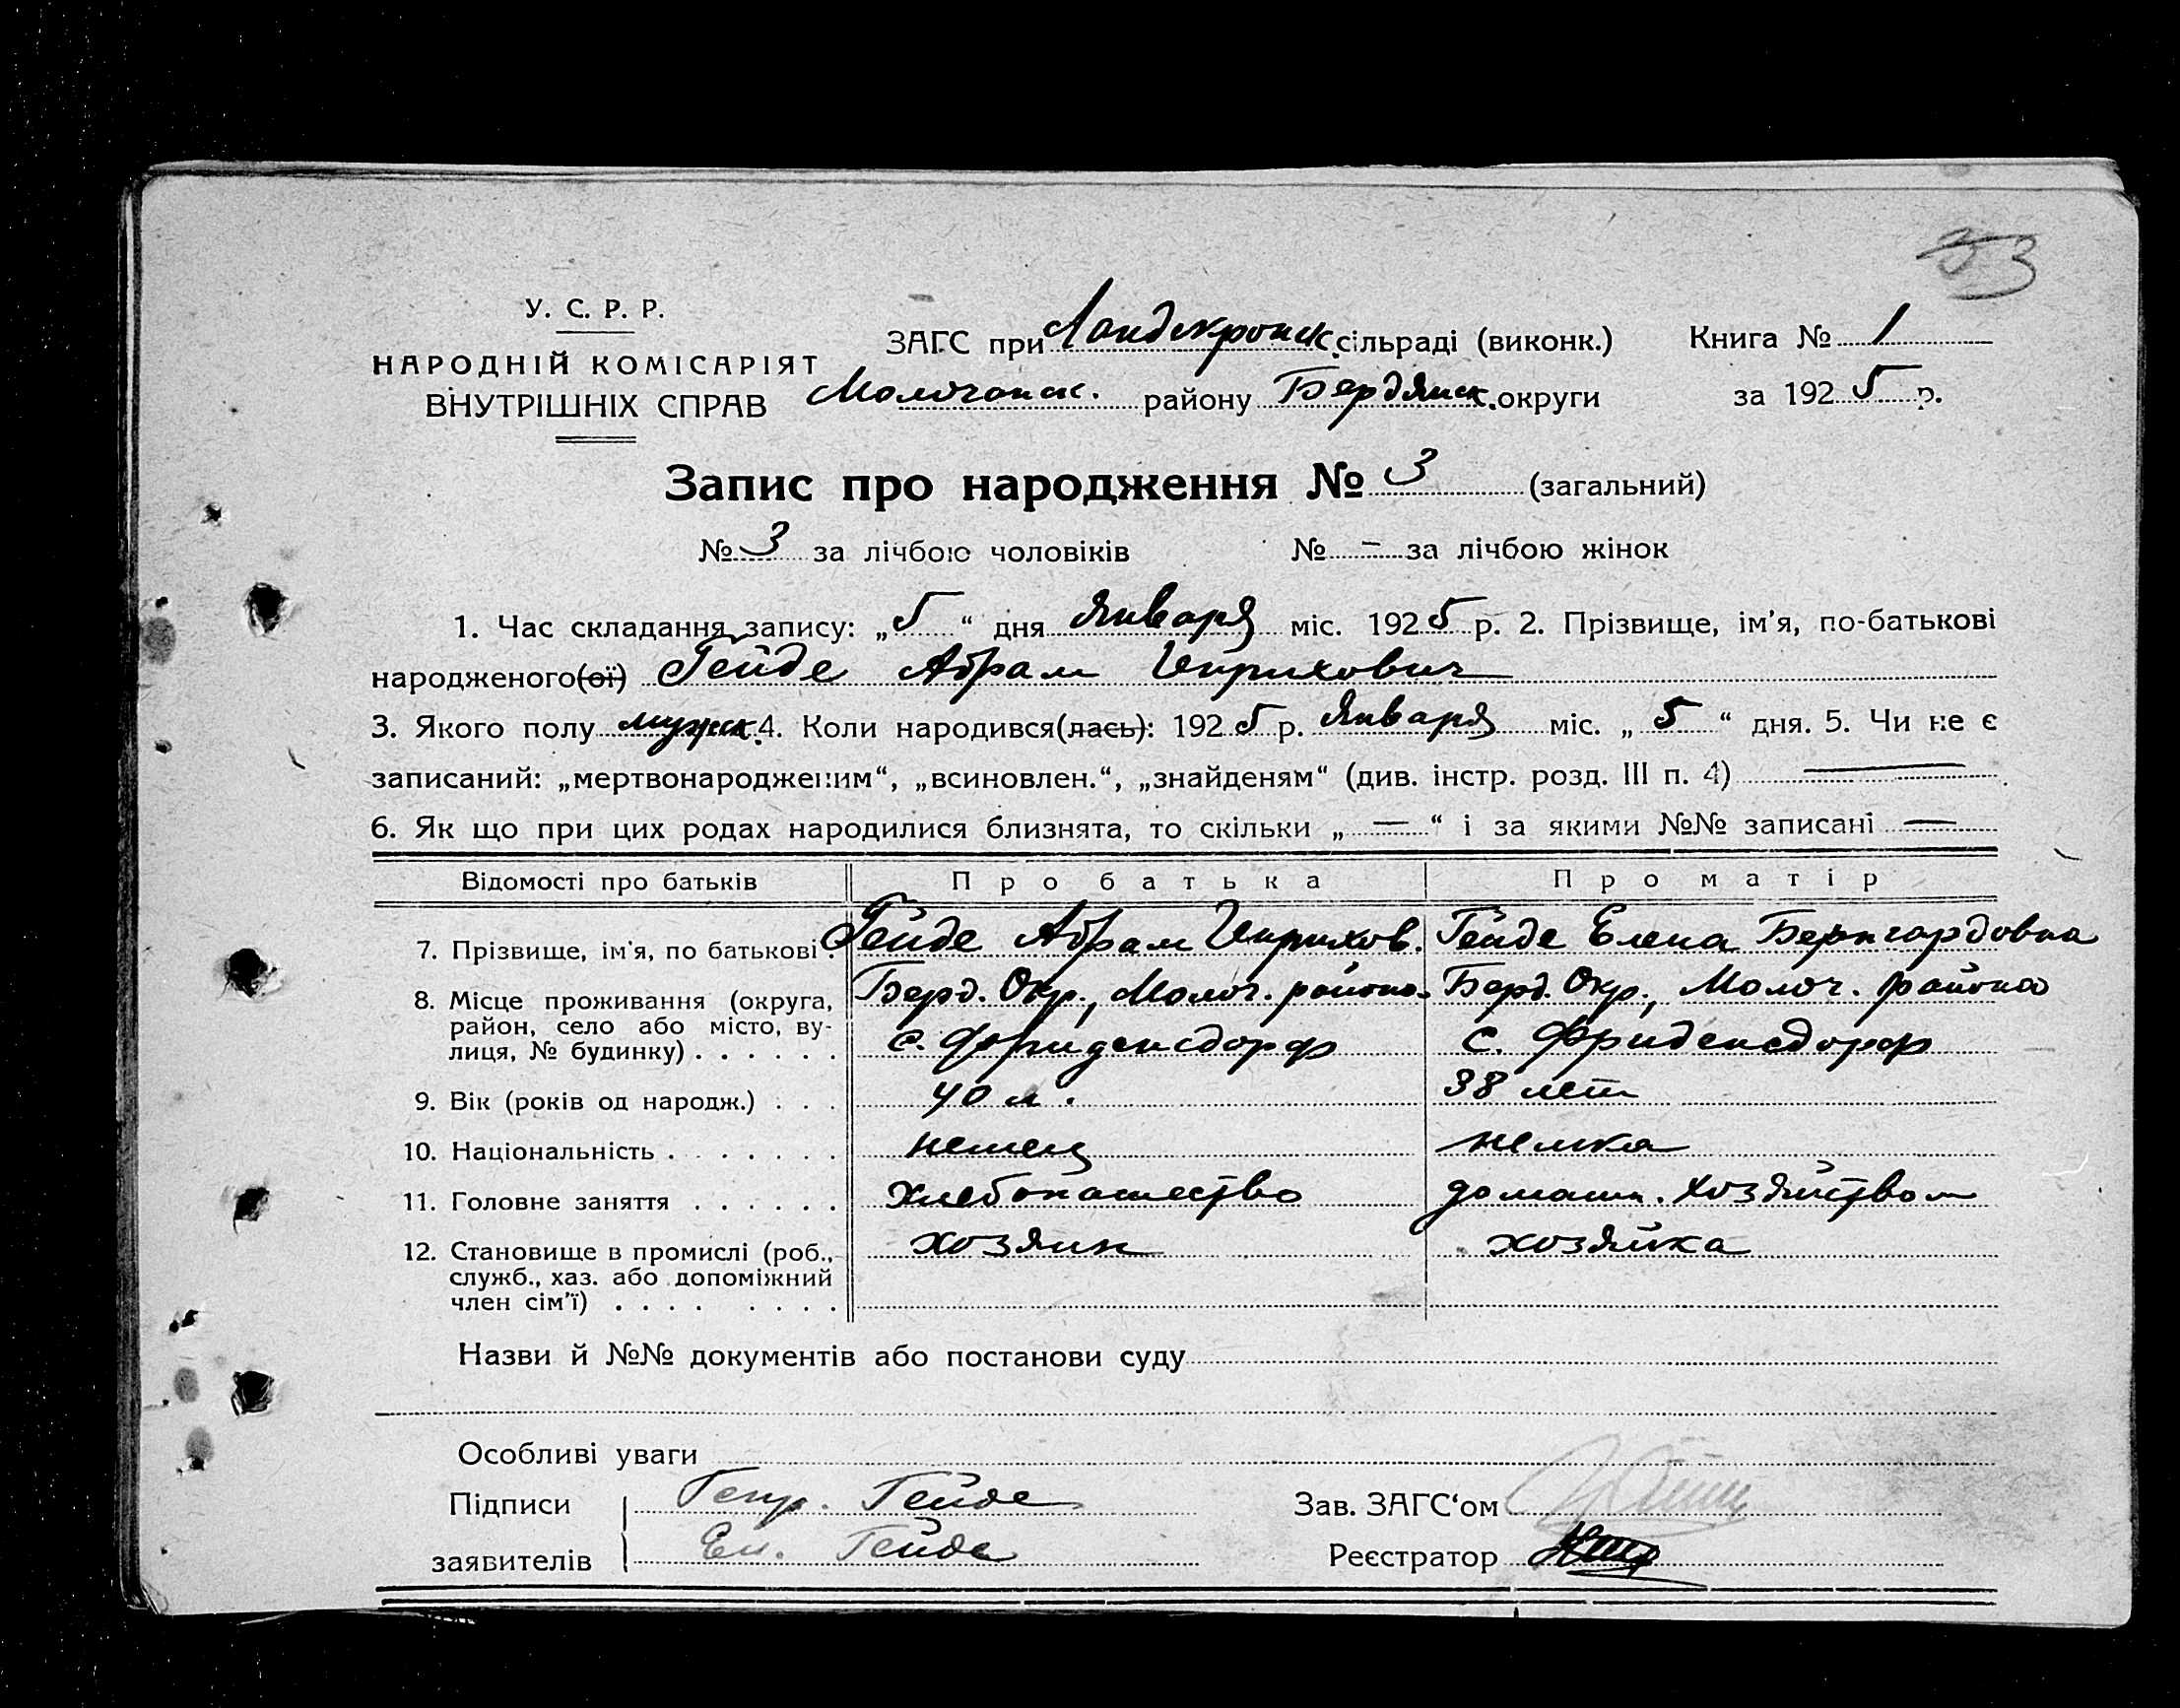 53
У. С. Р. Р.
НАРОДНІЙ КОМІСАРІЯТ
ВНУТРІШНІХ СПРАВ
ЗАГС при Ландскронск. сільраді (виконк.) Книга № 1
Молочанск. району Бердянск. округи за 1925 р.
Запис про народження № 3 (загальний)
№ 3 за лічбою чоловіків № – за лічбою жінок
1. Час складання запису: „5“ дня Января міс. 1925 р. 2. Прізвище, ім'я, по-батькові
народженого(ої) Гейде Абрам Генрихович
3. Якого полу мужск. 4. Коли народився(лась): 1925 р. Января міс. „5“ дня. 5. Чи не є
записаний: „мертвонародженим“, „всиновлен.“, „знайденям“ (див. інстр. розд. III п. 4) —
6. Як що при цих родах народилися близнята, то скільки „—“ і за якими №№ записані —
Відомості про батьків Про батька Про матір
7. Прізвище, ім'я, по батькові . Гейде Абрам Генрихов. Гейде Елена Бернгардовна
8. Місце проживання (округа, район, село або місто, вулиця, № будинку) . . . . . . Берд. Окр., Молоч. района Берд. Окр., Молоч. района
с. Фриденсдорф с. Фриденсдорф
9. Вік (років од народж.) . . . 40 л. 38 лет
10. Національність . . . . . . . немец немка
11. Головне заняття . . . . . . хлебопашество домашн. хозяйством
12. Становище в промислі (роб., служб., хаз. або допоміжний член сім'ї) . . . . . . . . хозяин хозяйка
Назви й №№ документів або постанови суду
Особливі уваги
Підписи Генр. Гейде Зав. ЗАГС'ом
заявителів Ел. Гейде Реєстратор